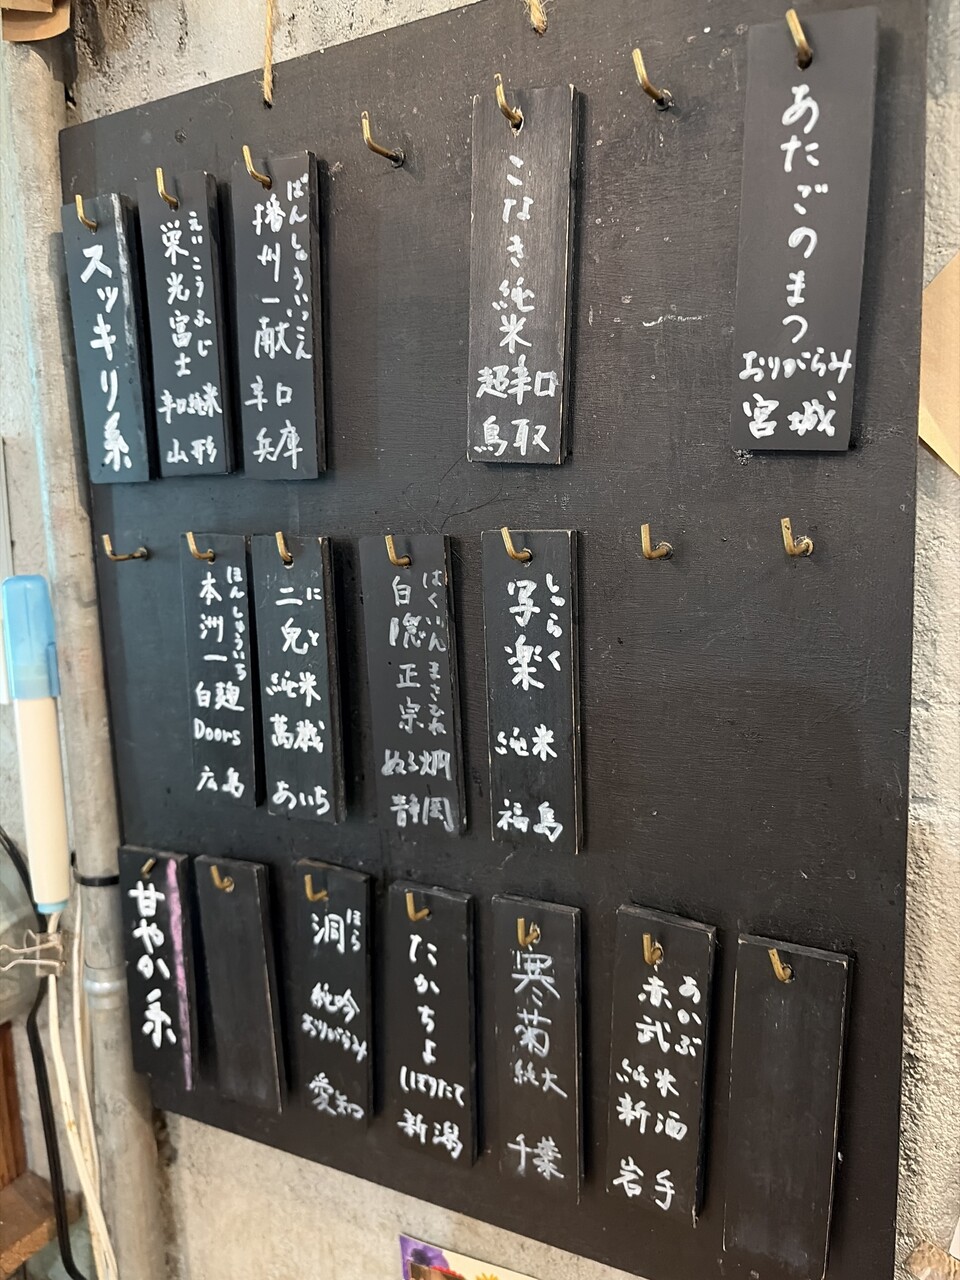 スッキリ系
えいこうふじ
栄光富士
辛口純米
山形
ばんしゅういっこん
播州一献
辛口
兵庫
こなき純米
超辛口
鳥取
あたごのまつ
おりがらみ
宮城
ほんしゅういち
本洲一
白麹
Doors
広島
にと
二兎
純米
萬歳
あいち
はくいんまさむね
白隠正宗
ぬる燗
静岡
しゃらく
写楽
純米
福島
甘やか系
ほら
洞
純吟
おりがらみ
愛知
たかちよ
しぼりたて
新潟
寒菊
純大
千葉
あかぶ
赤武
純米
新酒
岩手